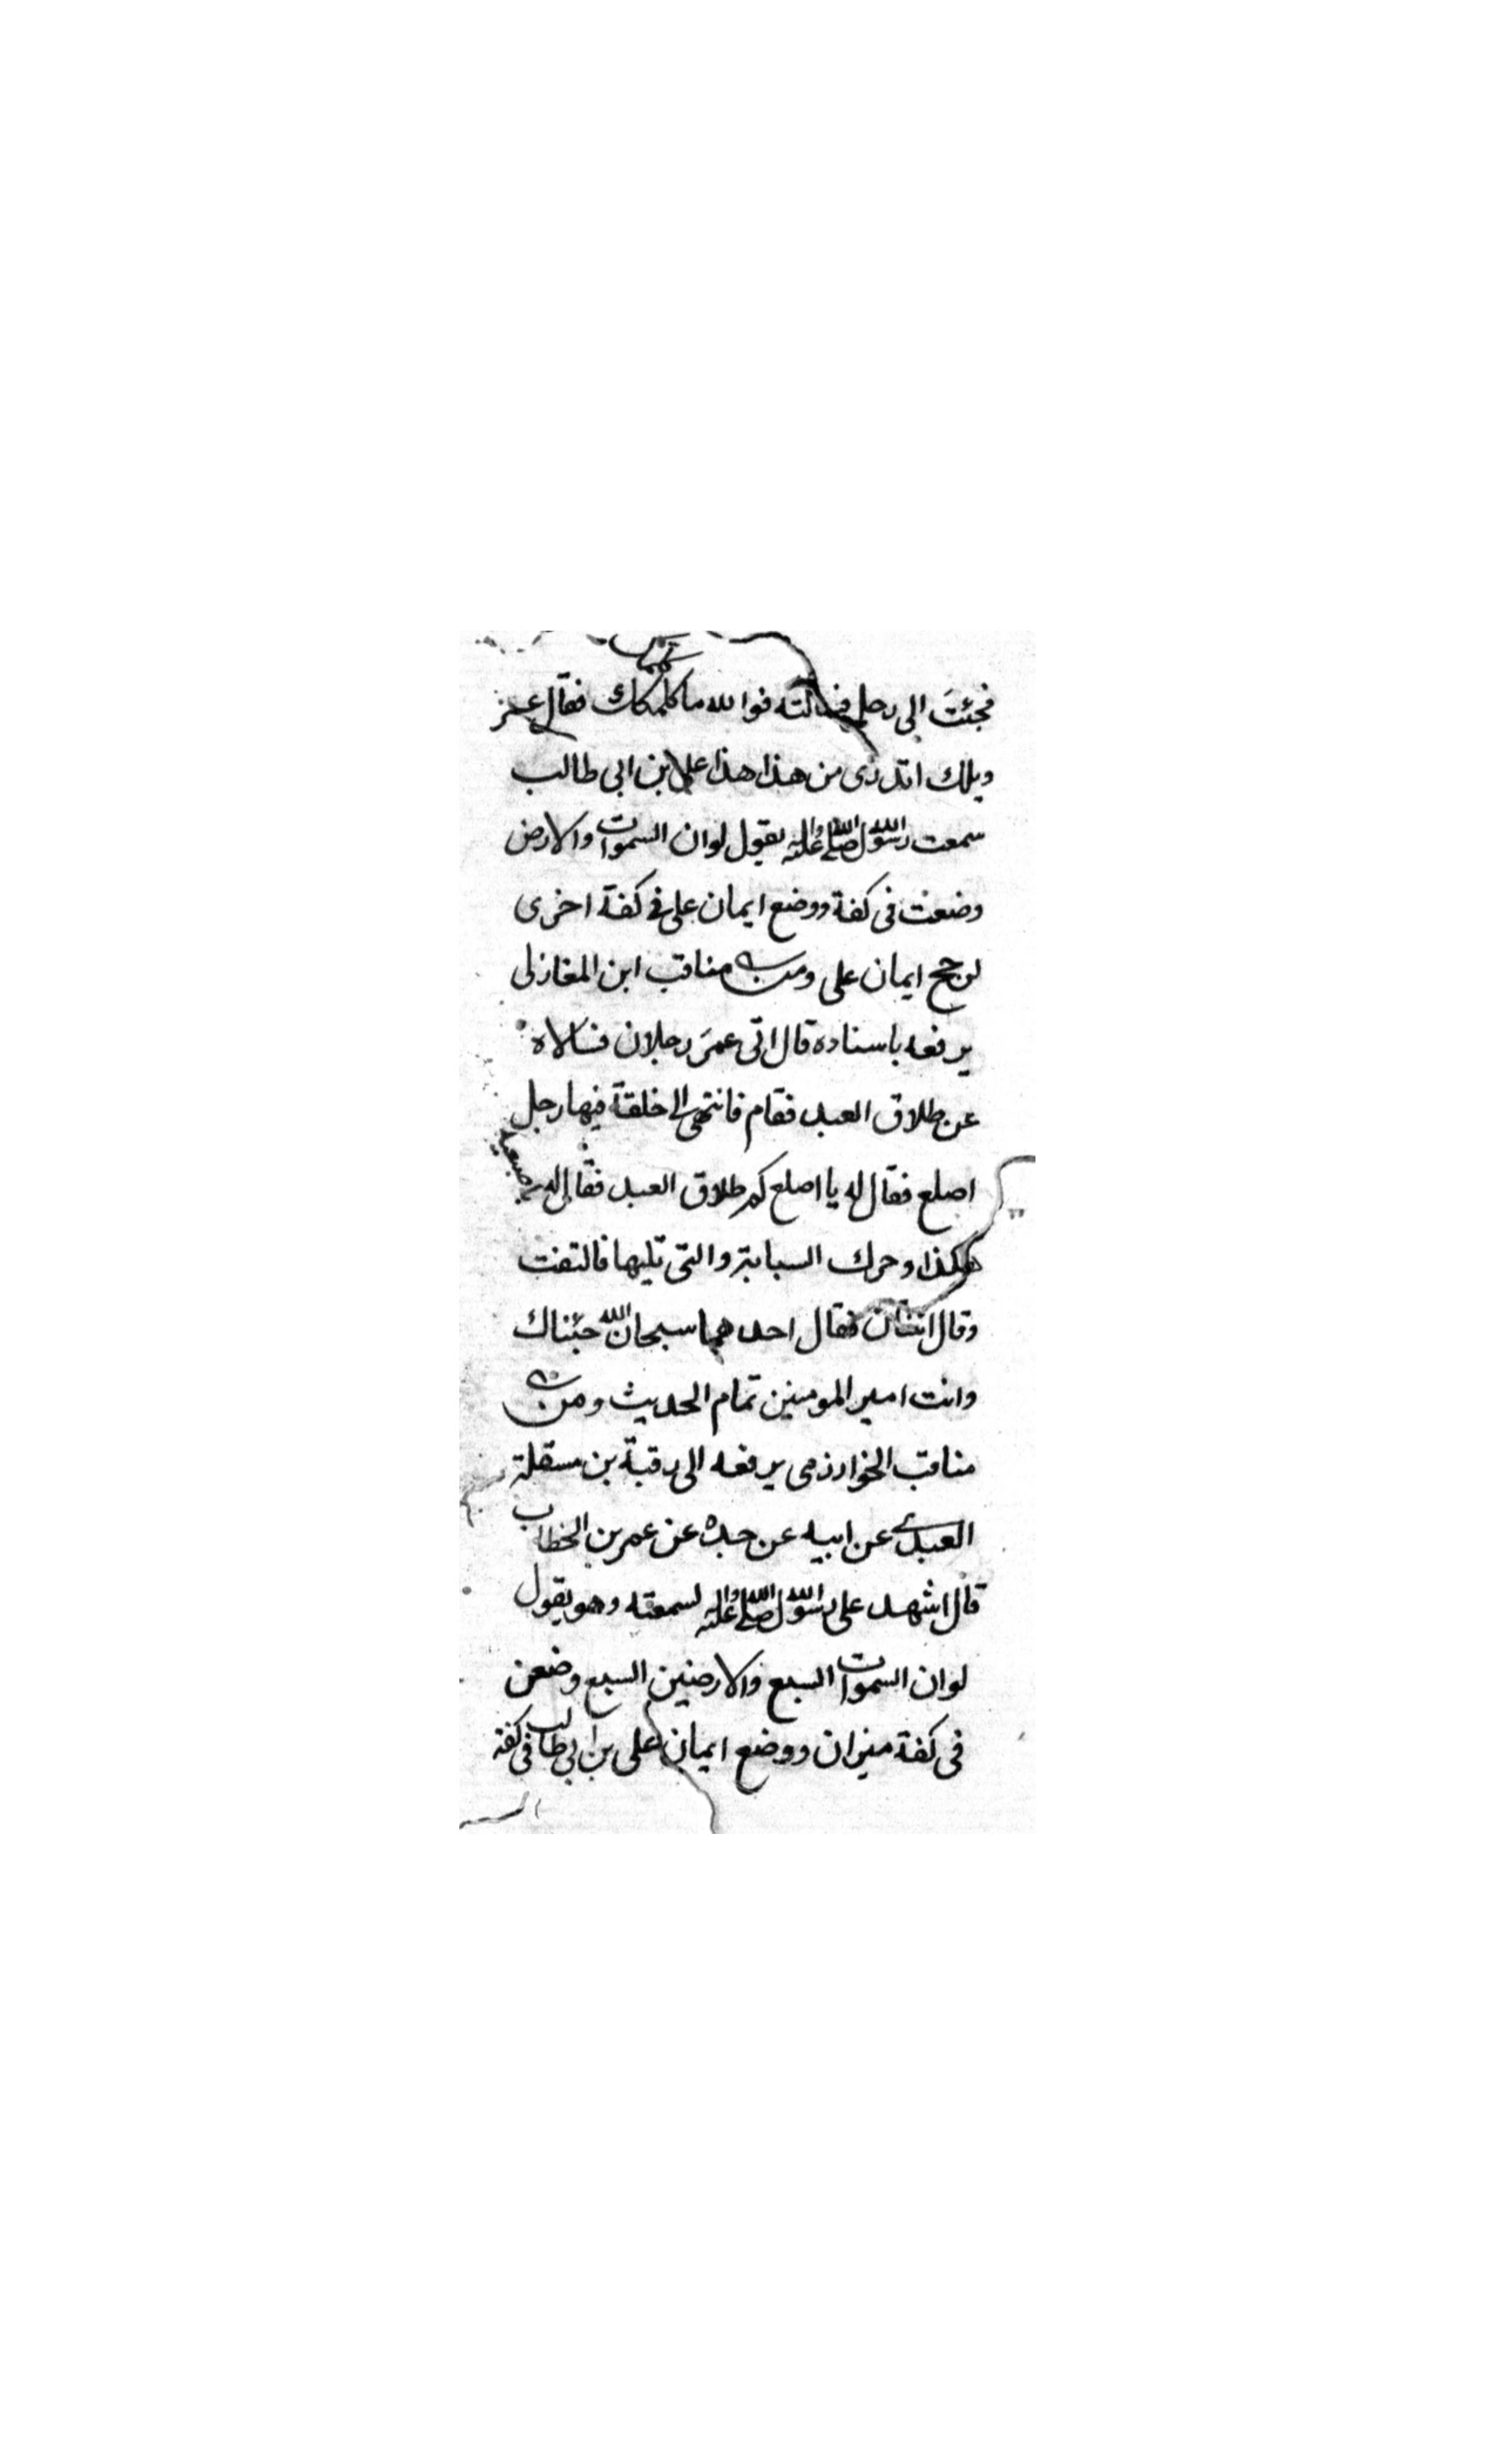 فجئتَ الى رجل فسالته فوالله ما كلمك فقال عمر
ويلك اتدرى من هذا هذا على بن ابى طالب
سمعت رسول الله صلى الله عليه واله يقول لو ان السموات والارض
وضعت فى كفة ووضع ايمان على فى كفة اخرى
لرجح ايمان على ومن مناقب ابن المغازلى
يرفعه باسناده قال اتى عمرَ رجلان فسالاه
عن طلاق العبد فقام فانتهى الى خلقة فيها رجل
اصلع فقال له يا اصلع كم طلاق العبد فقال له باصبعيه
هكذا وحرك السبابة والتى تليها فالتفت
وقال اثنتان فقال احدهما سبحان الله جئناك
وانت امير المومنين تمام الحديث ومن
مناقب الخوارزمى يرفعه الى رقبة بن مسقلة
العبدى عن ابيه عن جده عن عمر بن الخطاب
قال اشهد على رسول الله صلى الله عليه واله لسمعته وهو يقول
لو ان السموات السبع والارضين السبع وضعن
فى كفة ميزان ووضع ايمان على بن ابى طالب فى كفة